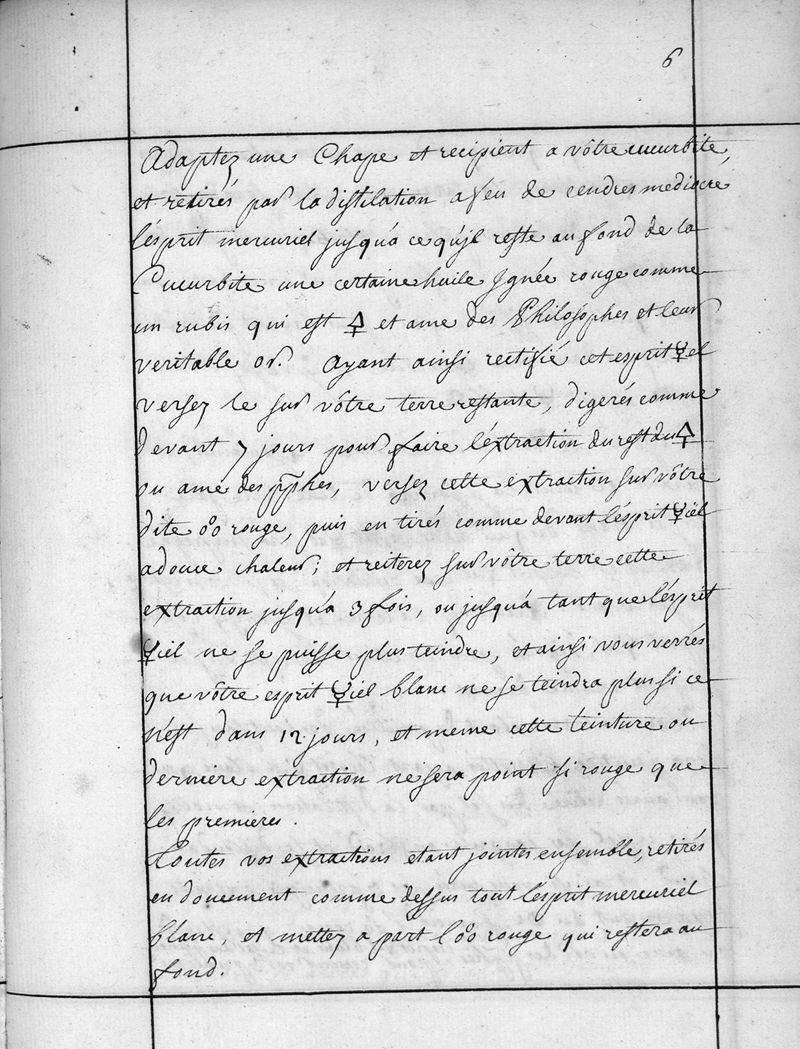 6
Adaptez une Chape et recipient a vôtre cucurbite,
et retirés par la distilation a feu de cendres mediocre
l'ésprit mercuriel jusqu'a ce qu'jl reste au fond de la
Cucurbite une certaine huile Jgnée rouge comme
un rubis qui est 🜍 et ame des Philosophes et leur
veritable or. Ayant ainsi rectifié cet esprit ☿el
versez le sur vôtre terre restante, digerés comme
devant 7 jours pour faire l'éxtraction du rest du 🜍
ou ame des pphes, versez cette extraction sur vôtre
dite o°o rouge, puis en tirés comme devant l'ésprit ☿iel
a douce chaleur; et reiterez sur vôtre terre cette
extraction jusqu'a 3 fois, ou jusqu'a tant que l'ésprit
☿iel ne se puisse plus teindre, et ainsi vous verrés
que vôtre esprit ☿iel blanc ne se teindra plus si ce
n'est dans 12 jours, et meme cette teinture ou
derniére extraction ne sera point si rouge que
les premieres.
Toutes vos extractions etant jointes ensemble, retirés
en doucement comme dessus tout l'esprit mercuriel
blanc, et mettez a part l'o°o rouge qui restera au
fond.